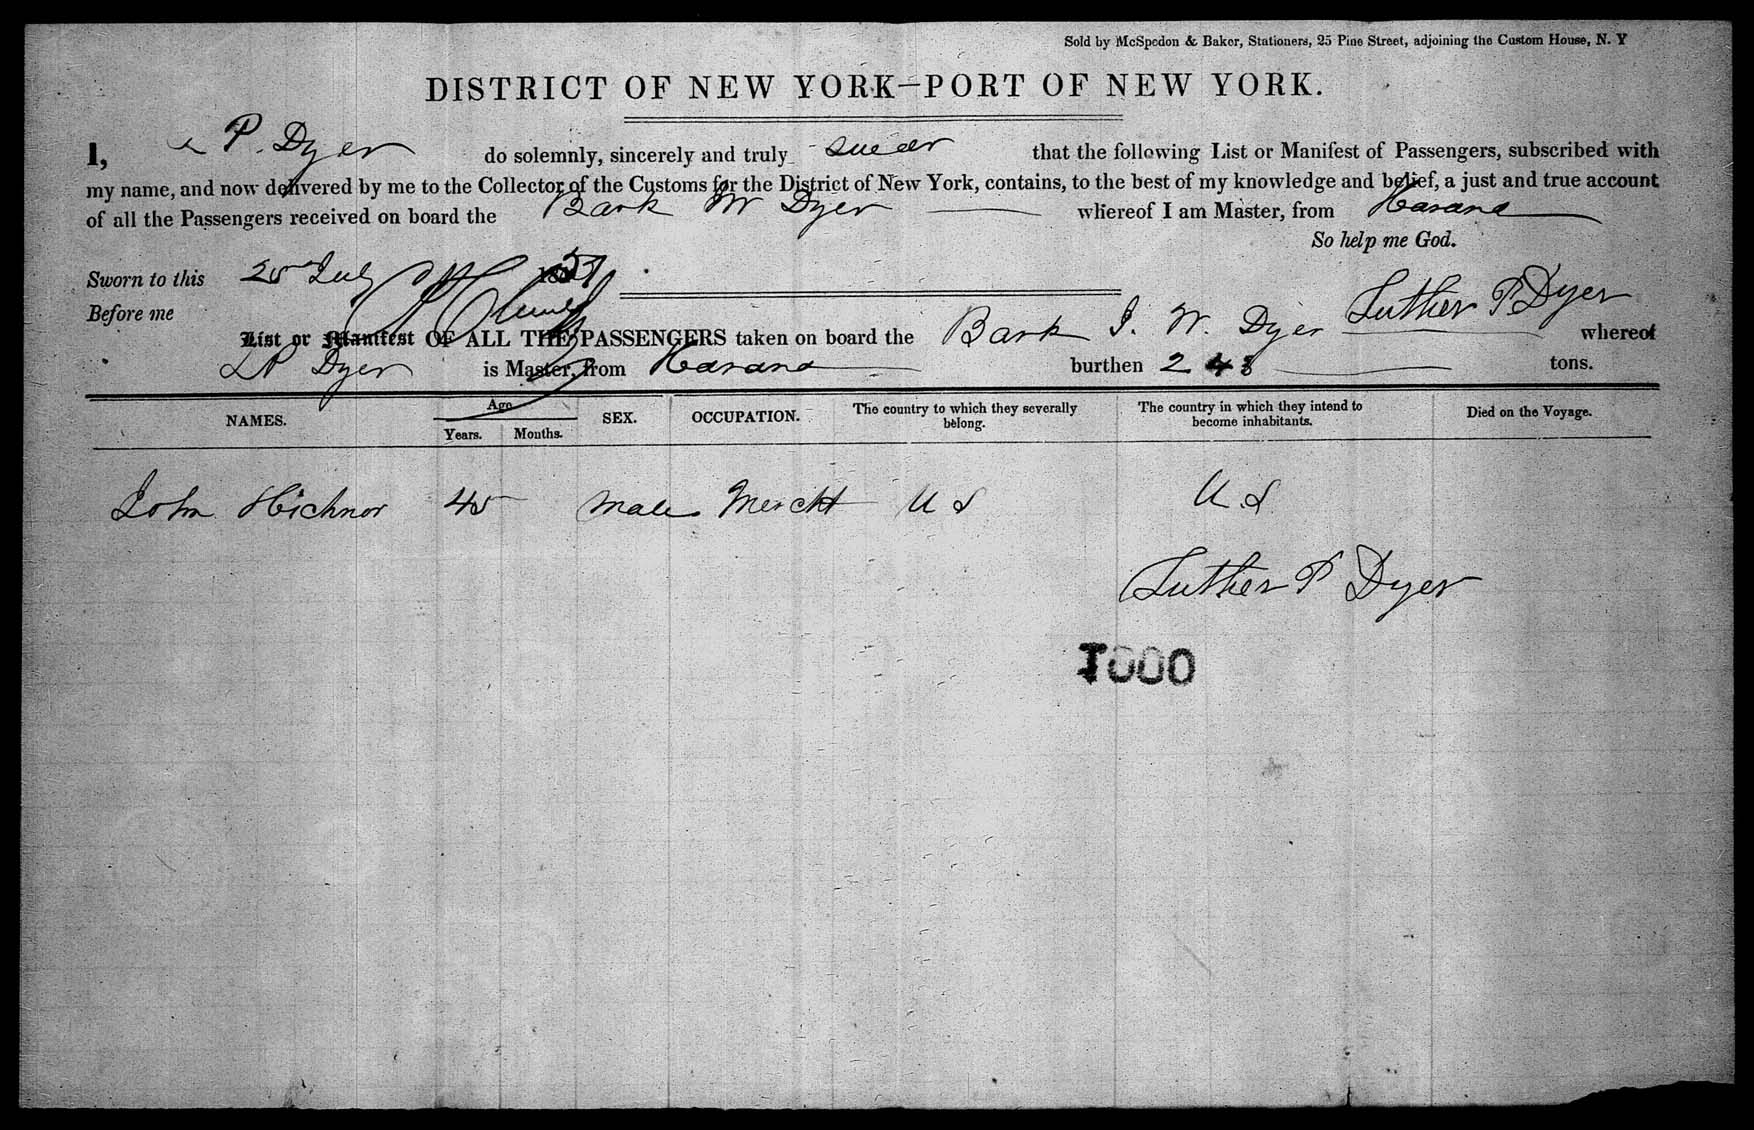 Sold by McSpedon & Baker, Stationers, 25 Pine Street, adjoining the Custom House, N. Y
DISTRICT OF NEW YORK—PORT OF NEW YORK.
I, P. Dyer do solemnly, sincerely and truly swear that the following List or Manifest of Passengers, subscribed with
my name, and now delivered by me to the Collector of the Customs for the District of New York, contains, to the best of my knowledge and belief, a just and true account
of all the Passengers received on board the Bark W Dyer whereof I am Master, from Havana
So help me God.
Sworn to this 25 July 1857
Before me Luther P Dyer
List or Manifest OF ALL THE PASSENGERS taken on board the Bark J. W. Dyer whereof
L P Dyer is Master, from Havana burthen 243 tons.
NAMES. Age Years. Months. SEX. OCCUPATION. The country to which they severally belong. The country in which they intend to become inhabitants. Died on the Voyage.
John Hichnor 45 male Mercht U S U.S
Luther P Dyer
1000